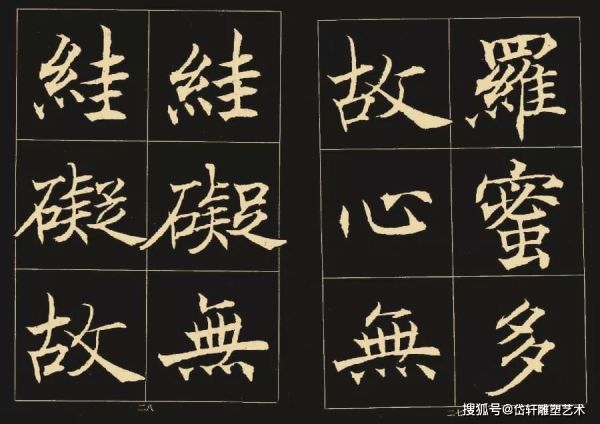 羅蜜多
故心無
二七
絓礙無
絓礙故
二八
搜狐号@岱轩雕塑艺术